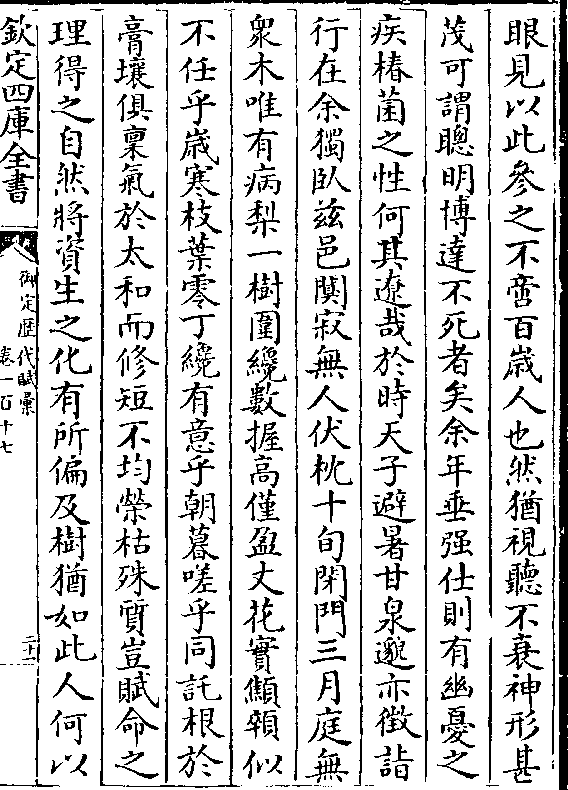 眼見以此參之不啻百歳人也然猶視聽不衰神形甚
茂可謂聰明博達不死者矣余年垂强仕則有幽憂之
疾椿菌之性何其遼哉於時天子避暑甘泉邈亦徵詣
行在余獨臥兹邑闃寂無人伏枕十旬閉門三月庭無
衆木唯有病梨一樹圍纔數握高僅盈丈花實顦顇似
不任乎歳寒枝葉零丁纔有意乎朝暮嗟乎同託根於
膏壤俱稟氣於太和而修短不均榮枯殊質豈賦命之
理得之自然將資生之化有所偏及樹猶如此人何以
欽定四庫全書
御定歴代賦彙
卷一百十七
二十一